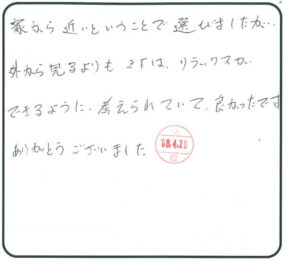 家から近いということで選びましたが…
外から見るよりも 2Fは、リラックスが
できるように、考えられていて、良かったです
ありがとうございました
08.4.20